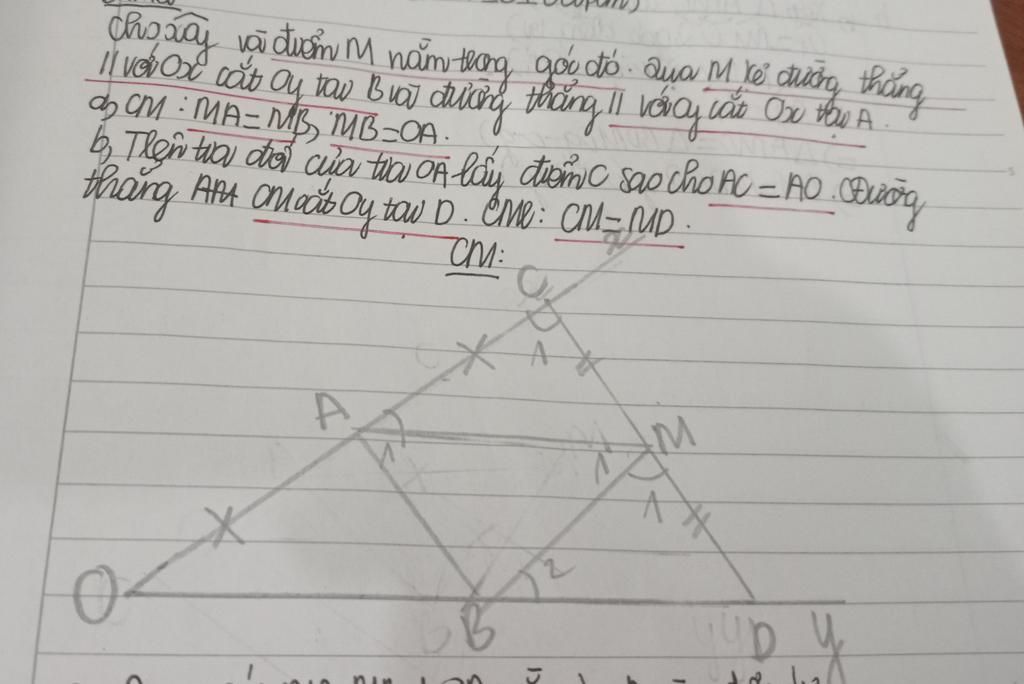 Cho xOy và điểm M nằm trong góc đó. Qua M kẻ đường thẳng
// với Ox cắt Oy tại B và đường thẳng // với Oy cắt Ox tại A.
a, CM : MA = MB, MB = OA.
b, Trên tia đối của tia OA lấy điểm C sao cho AC = AO. Đường
thẳng CM cắt Oy tại D. CMR: CM = MD.
CM:
x
C
1
A
1
M
1
1
2
O
B
D
y